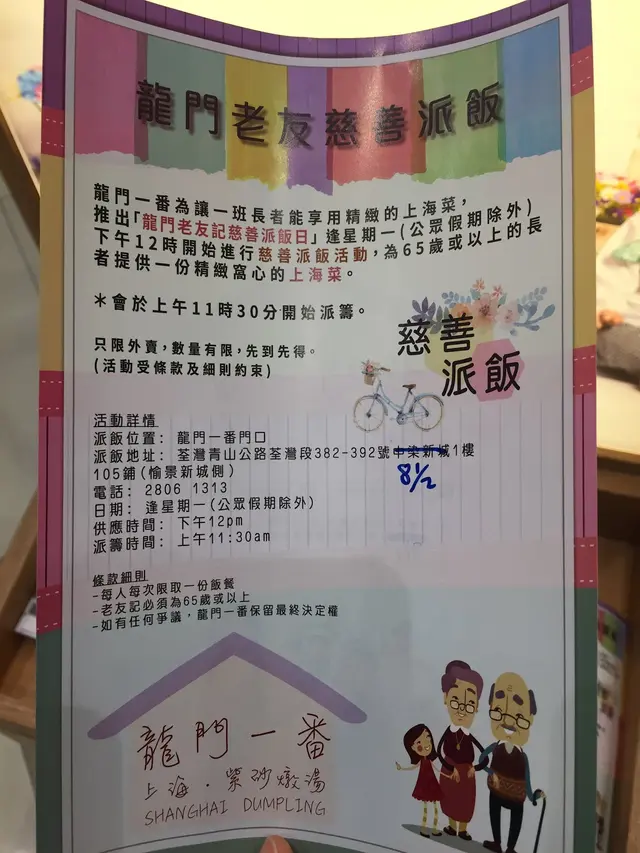 龍門老友慈善派飯
龍門一番為讓一班長者能享用精緻的上海菜，
推出「龍門老友記慈善派飯日」逢星期一(公眾假期除外)
下午12時開始進行慈善派飯活動，為65歲或以上的長
者提供一份精緻窩心的上海菜。
＊會於上午11時30分開始派籌。
只限外賣，數量有限，先到先得。
(活動受條款及細則約束)
慈善
派飯
活動詳情
派飯位置: 龍門一番門口
派飯地址: 荃灣青山公路荃灣段382-392號中染新城1樓
8½
105鋪(愉景新城側)
電話: 2806 1313
日期: 逢星期一(公眾假期除外)
供應時間: 下午12pm
派籌時間: 上午11:30am
條款細則
-每人每次限取一份飯餐
-老友記必須為65歲或以上
-如有任何爭議，龍門一番保留最終決定權
龍門一番
上海·紫砂燉湯
SHANGHAI DUMPLING